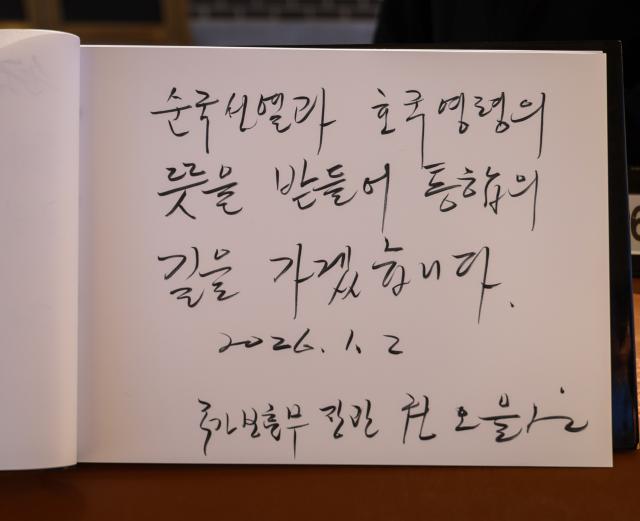 순국선열과 호국영령의
뜻을 받들어 통합의
길을 가겠습니다.
2026. 1. 2
국가보훈부 장관 권오을
6